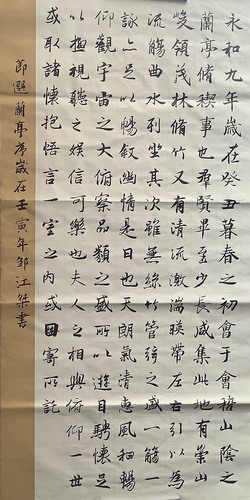 永和九年歲在癸丑暮春之初會于會稽山陰之
蘭亭脩稧事也群賢畢至少長咸集此地有崇山
峻領茂林脩竹又有清流激湍暎帶左右引以為
流觴曲水列坐其次雖無絲竹管弦之盛一觴一
詠亦足以暢敘幽情是日也天朗氣清惠風和暢
仰觀宇宙之大俯察品類之盛所以遊目騁懷足
以極視聽之娛信可樂也夫人之相與俯仰一世
或取諸懷抱悟言一室之內或因寄所託
節選蘭亭序歲在壬寅年鄒江桀書